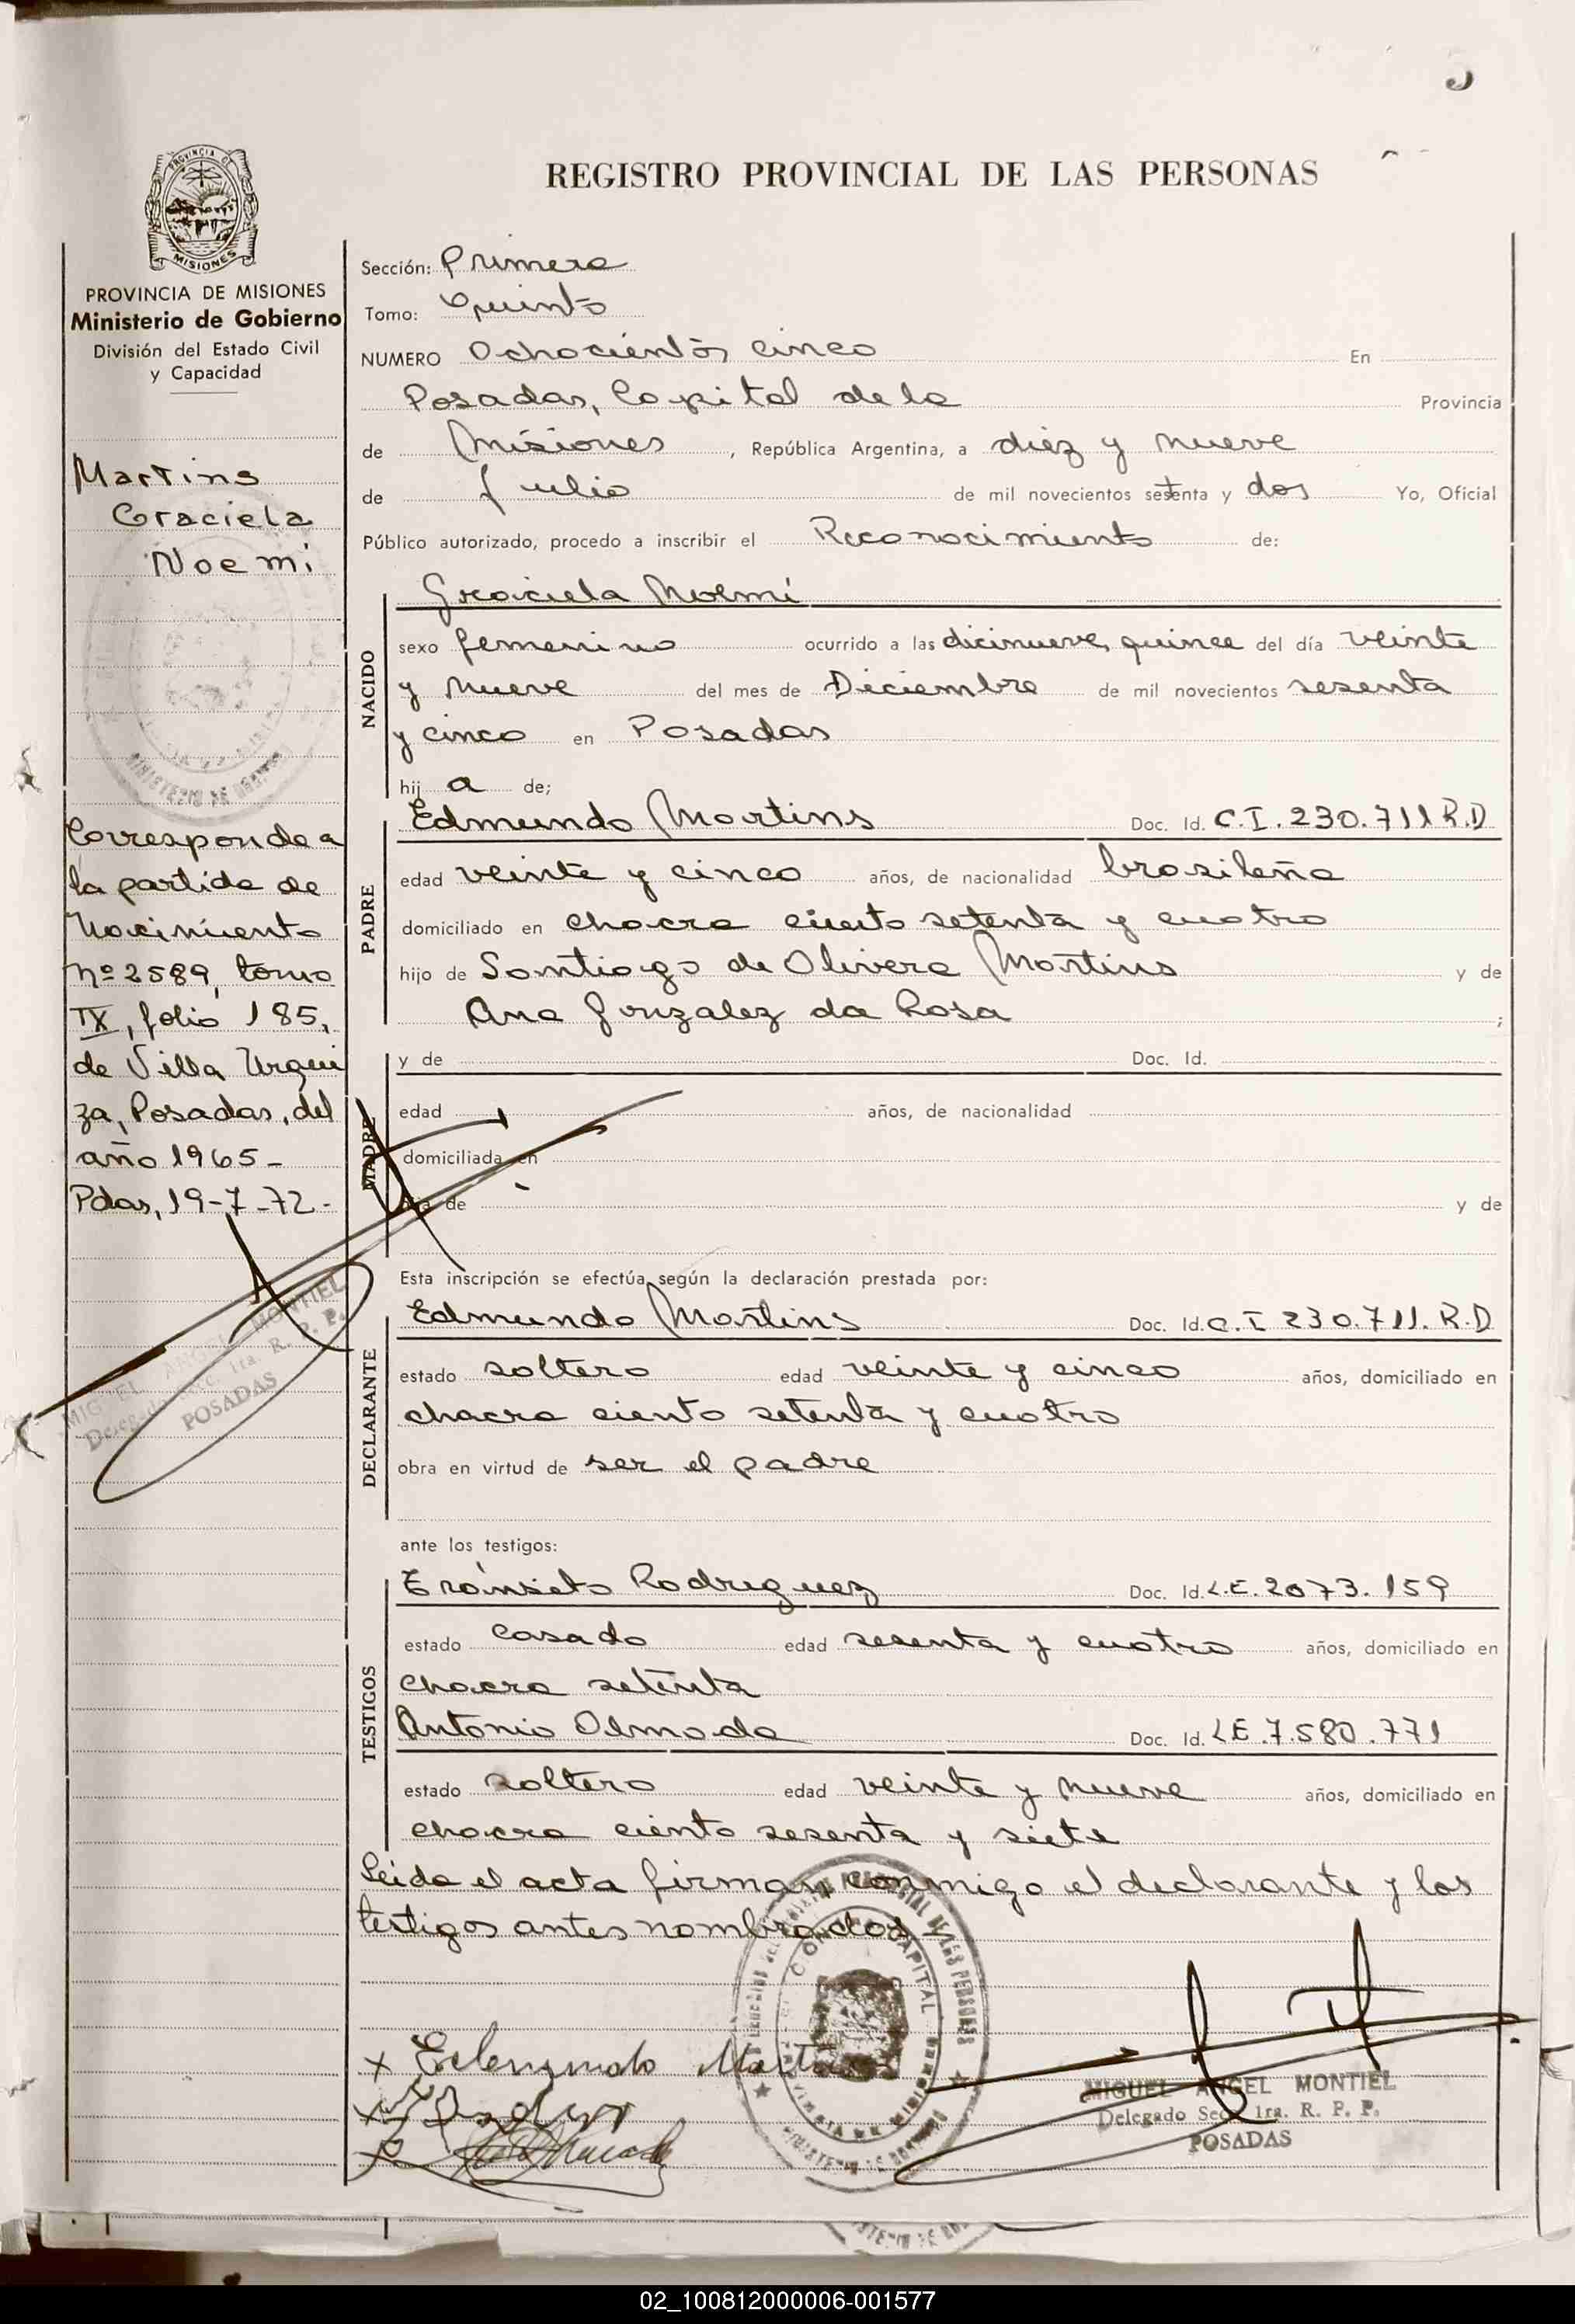 5
REGISTRO PROVINCIAL DE LAS PERSONAS
PROVINCIA DE MISIONES
Ministerio de Gobierno
División del Estado Civil
y Capacidad
Martins
Graciela
Noemi
Corresponde a
la partida de
Nacimiento
Nº 2589, tomo
IX, folio 185,
de Villa Urqui
za, Posadas, del
año 1965-
Pdas, 19-7-72-
MIGUEL ANGEL MONTIEL
Delegado Sec. 1ra. R. P. P.
POSADAS
Sección: Primera
Tomo: Quinto
NUMERO Ochocientos cinco En
Posadas, Capital de la Provincia
de Misiones, República Argentina, a diez y nueve
de Julio de mil novecientos setenta y dos Yo, Oficial
Público autorizado, procedo a inscribir el Reconocimiento de:
NACIDO
Graciela Noemí
sexo femenino ocurrido a las dicinueve, quince del día veinte
y nueve del mes de Diciembre de mil novecientos sesenta
y cinco en Posadas
hij a de;
PADRE
Edmundo Martins Doc. Id. C.I. 230.711 R.D
edad veinte y cinco años, de nacionalidad brasileña
domiciliado en chacra ciento setenta y cuatro
hijo de Santiago de Olivera Martins y de
Ana Gonzalez da Rosa ;
MADRE
y de Doc. Id.
edad años, de nacionalidad
domiciliada en
hija de y de
Esta inscripción se efectúa según la declaración prestada por:
DECLARANTE
Edmundo Martins Doc. Id. C.I 230.711. R.D
estado soltero edad veinte y cinco años, domiciliado en
chacra ciento setenta y cuatro
obra en virtud de ser el padre
ante los testigos:
TESTIGOS
Tránsito Rodriguez Doc. Id. L.E. 2073.159
estado casado edad sesenta y cuatro años, domiciliado en
chacra setenta
Antonio Olmeda Doc. Id. LE.7.580.771
estado soltero edad veinte y nueve años, domiciliado en
chacra ciento sesenta y siete
Leida el acta firman conmigo el declarante y los
testigos antes nombrados
x Edmundo Martins
MIGUEL ANGEL MONTIEL
Delegado Sec. 1ra. R. P. P.
POSADAS
02_100812000006-001577